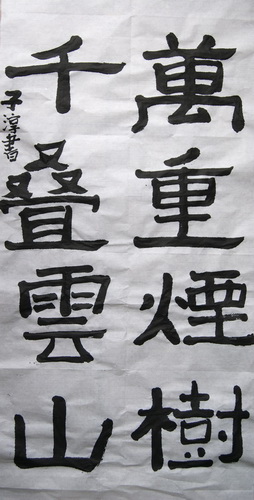 萬重煙樹
千叠雲山
子淳書